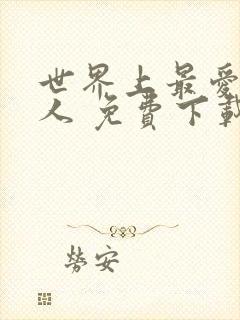 世界上最愛
人 免費下載
勞安